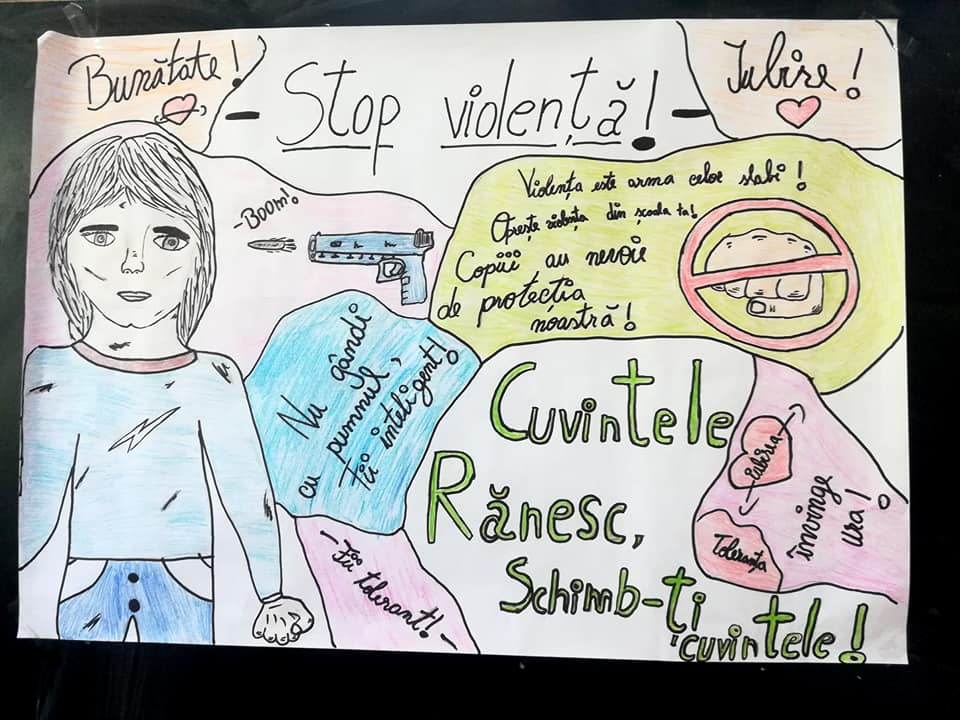 Bunătate!
- Stop violență! -
Iubire!
-Boom!
Violența este arma celor slabi!
Oprește violența din școala ta!
Copiii au nevoie
de protecția
noastră!
Nu gândi
cu pumnul,
fii inteligent!
Cuvintele
Rănesc,
Schimb-ți
cuvintele!
iubirea
Toleranța
învinge
ura!
- Fii tolerant! -